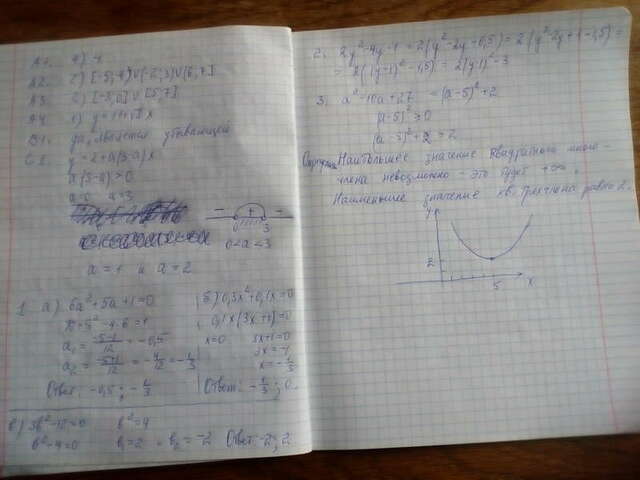 A1. 4) -1
A2. 2) [-5;-4)∪(-2;3)∪(6;7]
A3. 2) [-3;0]∪[5;7]
A4. 1)
B1. да, является убывающей
C1. y = 2 + a(3-a)x
a(3-a)>0
a=0 a=3
- + -
3
0<a<3
a=1 и a=2
1 а) 6a²+5a+1=0
D=5²-4·6=1
a₁ = (-5-1)/12 = -0,5
a₂ = (-5+1)/12 = -4/12 = -1/3
Ответ: -0,5 ; -1/3
б) 0,3x²+0,1x=0
0,1x(3x+1)=0
x=0 3x+1=0
3x=-1
x=-1/3
Ответ: -1/3 ; 0.
в) 3b²-12=0 b²=4
b²-4=0 b₁=2 b₂=-2 Ответ -2; 2
2. 2y²-4y-1 = 2(y²-2y-0,5) = 2(y²-2y+1-1,5) =
= 2((y-1)²-1,5) = 2(y-1)²-3
3. a²-10a+27 = (a-5)²+2
(a-5)² ≥0
(a-5)²+2 ≥ 2
Наибольшее значение квадратного много-
члена невозможно - это будет +∞,
Наименьшее значение кв. трехчлена равно 2.
y
2
5 x